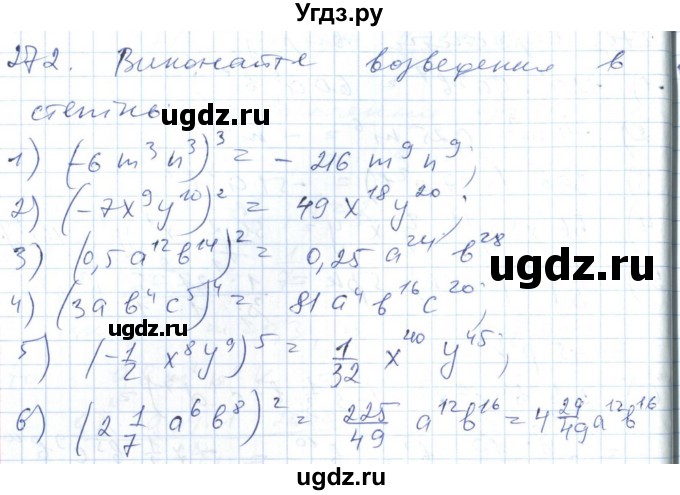 Угдз.ру
272. Виконайте возведения в
степінь
ugdz.ru
1) (-6 m³ n³)³ = - 216 m⁹ n⁹;
ugdz.ru
2) (-7x⁹y¹⁰)² = 49 x¹⁸y²⁰;
3) (0,5a¹²b¹⁴)² = 0,25 a²⁴ b²⁸
ugdz.ru
4) (3a b⁴ c⁵)⁴ = 81a⁴ b¹⁶ c²⁰;
ugdz.ru
5) (-1/2 x⁸y⁹)⁵ = 1/32 x⁴⁰ y⁴⁵;
6) (2 1/7 a⁶ b⁸)² = 225/49 a¹²b¹⁶ = 4 29/49 a¹²b¹⁶
ugdz.ru
ugdz.ru